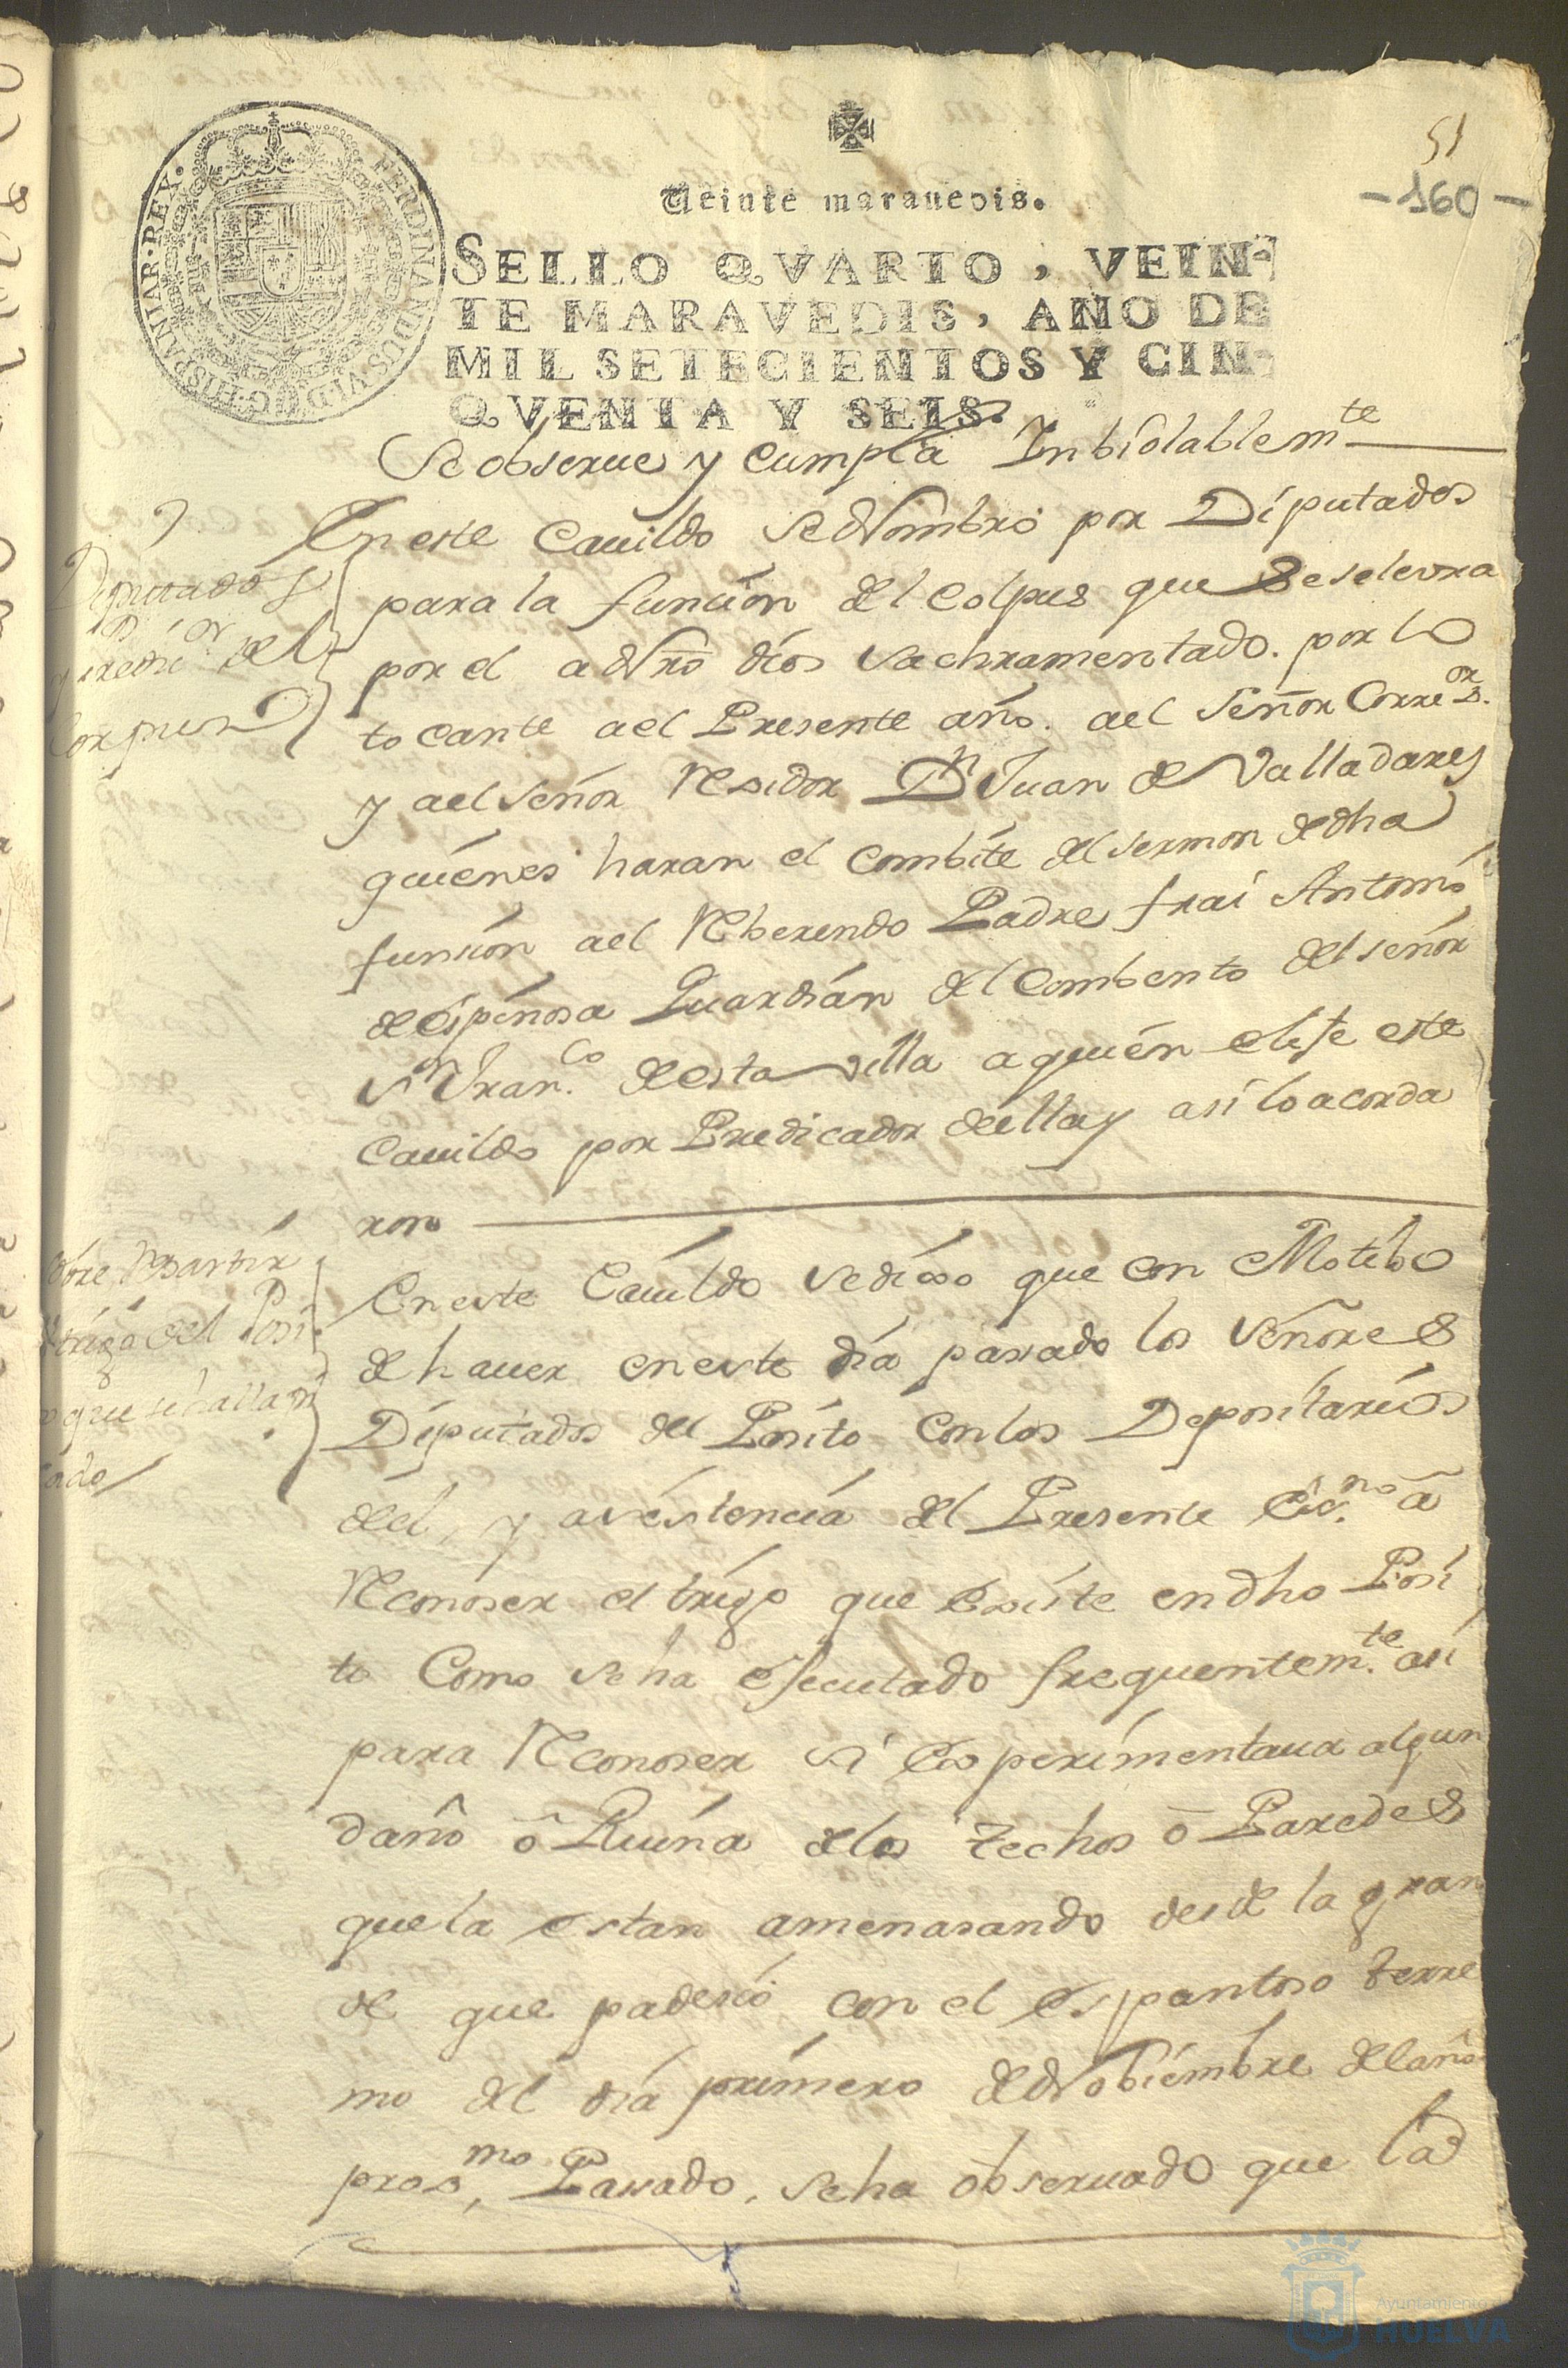 51
-160-
Veinte maravedis.
SELLO QVARTO, VEIN-
TE MARAVEDIS, AÑO DE
MIL SETECIENTOS Y CIN-
QVENTA Y SEIS.
FERDINANDUS VI D G HISPANIAR REX
Se obserue y Cumpla Inbiolablem.te
Diputados
y del
Corpus
En este Cauildo se Nombro por Diputados
para la funcion del Colpus que Se selevra
por el a Nro dios Sachramentado. por lo
tocante ael Presente año. ael Señor Corre.or
y ael señor Residor Dn Juan de Valladares
quienes haran el Combite del sermon de dha
funsion ael Rberendo Padre frai Antonio
de Espinosa Guardian del Combento del señor
Sn Fran.co de esta villa a quien elije este
Cauildo por Predicador della y asi lo acorda
ron
trigo del Posi
que se halla
En este Cauildo se dixo que con Motibo
de hauer en este dia pasado los Señores
Diputados del Posito Con los Depositarios
del, y asistencia del Presente Es.no a
Reconoser el trigo que Existe en dho Posi
to Como se ha ejecutado frequentem.te asi
para Reconoser si Experimentaua algun
daño o Ruina de los techos o Paredes
que la estan amenasando desde la gran
de que padesio con el espantoso terre
mo del dia primero de Nobiembre del año
prox.mo Pasado, se ha obseruado que la
Ayuntamiento de
HUELVA